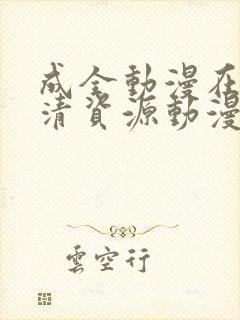 成全動漫在
清資源動漫
雲空行